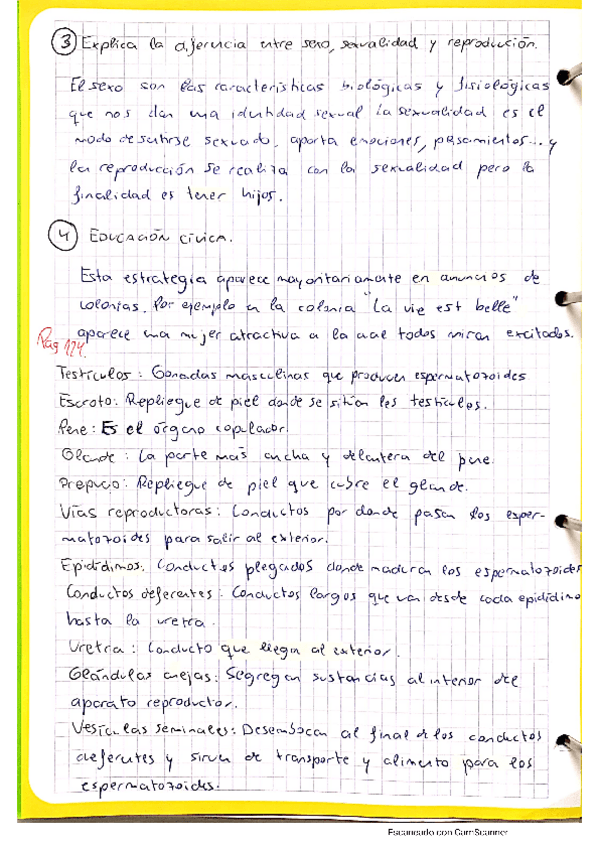 3 Explica la diferencia entre sexo, sexualidad y reproducción.
El sexo son las características biológicas y fisiológicas
que nos dan una identidad sexual La sexualidad es el
modo de sentirse sexuado, aporta emociones, pensamientos... y
la reproducción se realiza con la sexualidad pero la
finalidad es tener hijos.
4 EDUCACIÓN CÍVICA.
Esta estrategia aparece mayoritariamente en anuncios de
colonias. Por ejemplo en la colonia "La vie est belle"
aparece una mujer atractiva a la que todos miran excitados.
Pag 124.
Testículos: Gonadas masculinas que producen espermatozoides
Escroto: Repliegue de piel donde se sitúan los testículos.
Pene: Es el órgano copulador.
Glande: La parte más ancha y delantera del pene.
Prepucio: Repliegue de piel que cubre el glande.
Vías reproductoras: Conductos por donde pasan los esper-
matozoides para salir al exterior.
Epidídimos: Conductos plegados donde maduran los espermatozoides
Conductos deferentes: Conductos largos que van desde cada epidídimo
hasta la uretra.
Uretra: Conducto que llega al exterior.
Glándulas anejas: Segregan sustancias al interior del
aparato reproductor.
Vesículas seminales: Desembocan al final de los conductos
deferentes y sirven de transporte y alimento para los
espermatozoides.
Escaneado con CamScanner